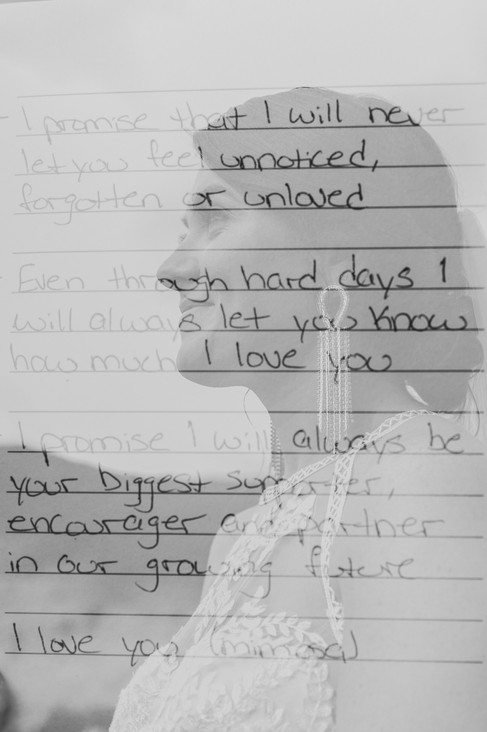 I promise that I will never
let you feel unnoticed,
forgotten or unloved
Even through hard days I
will always let you know
how much I love you
I promise I will always be
your biggest supporter,
encourager and partner
in our growing future
I love you (mimosa)